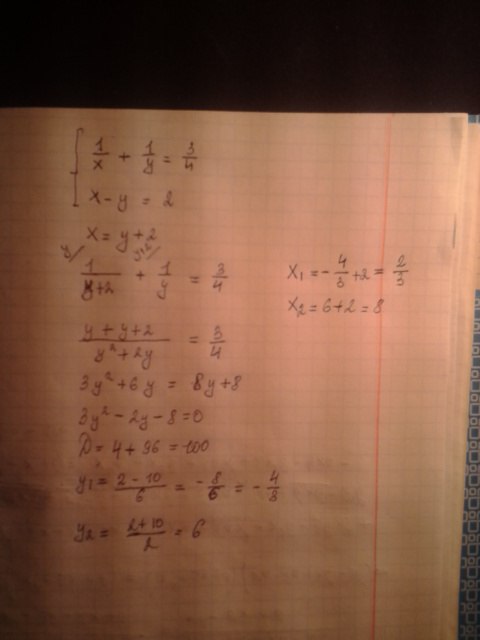 { 1/x + 1/y = 3/4
x - y = 2
x = y + 2
y/ y+2/
1/(y+2) + 1/y = 3/4
(y + y + 2)/(y² + 2y) = 3/4
3y² + 6y = 8y + 8
3y² - 2y - 8 = 0
D = 4 + 96 = 100
y₁ = (2 - 10)/6 = -8/6 = -4/3
y₂ = (2+10)/2 = 6
x₁ = -4/3 + 2 = 2/3
x₂ = 6 + 2 = 8